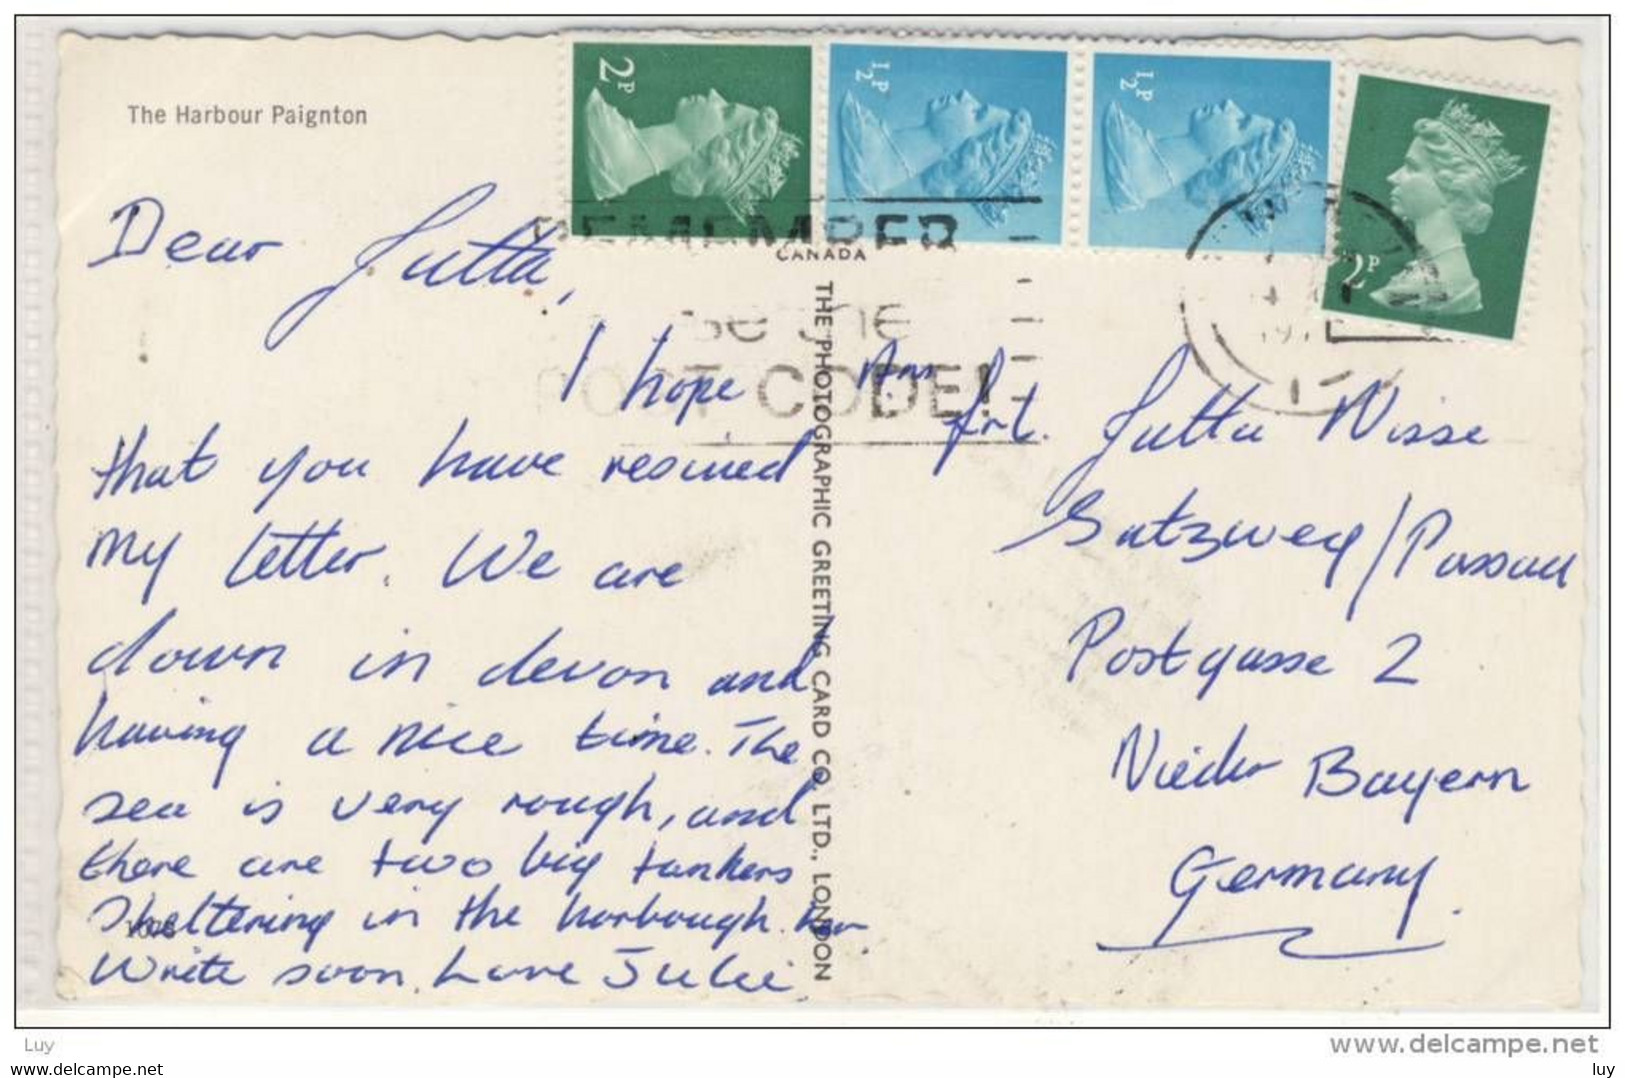 The Harbour Paignton
2P
½P
½P
2P
REMEMBER
use the
POST CODE!
CANADA
THE PHOTOGRAPHIC GREETING CARD CO. LTD., LONDON
Dear Jutta,
I hope
that you have resined
my letter. We are
down in devon and
having a nice time. The
sea is very rough, and
there are two big tankers
sheltering in the harbough.
Write soon. Love Julie
Frl. Jutta Nisse
Satzweg/Passau
Postgasse 2
Nieder Bayern
Germany.
Luy
www.delcampe.net
Luy
luy